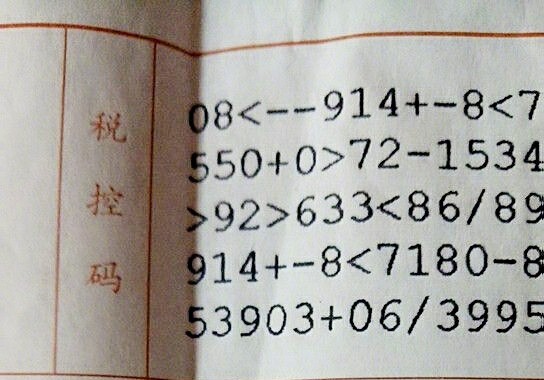 税控码
08<--914+-8<7
550+0>72-1534
>92>633<86/89
914+-8<7180-8
53903+06/3995